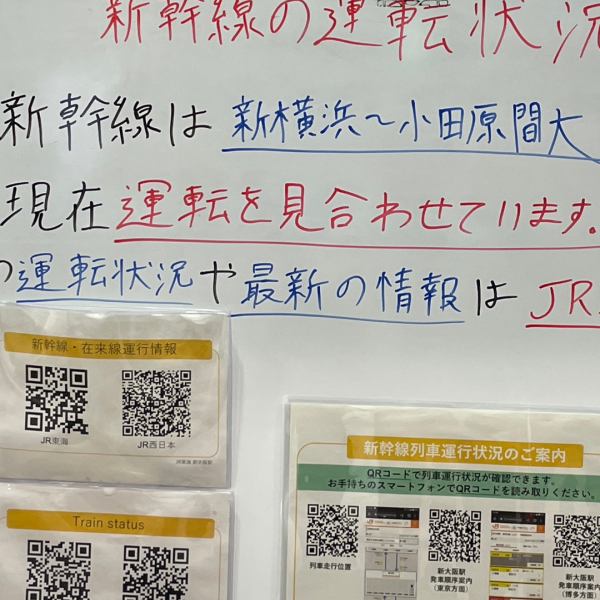 新幹線の運転状況
新幹線は 新横浜～小田原間大
現在 運転を見合わせています。
の運転状況や最新の情報は JR
新幹線・在来線運行情報
JR東海
JR西日本
JR東海 新大阪駅
Train status
新幹線列車運行状況のご案内
QRコードで列車運行状況が確認できます。
お手持ちのスマートフォンでQRコードを読み取りください。
列車走行位置
新大阪駅
発車順序案内
(東京方面)
新大阪駅
発車順序案内
(博多方面)